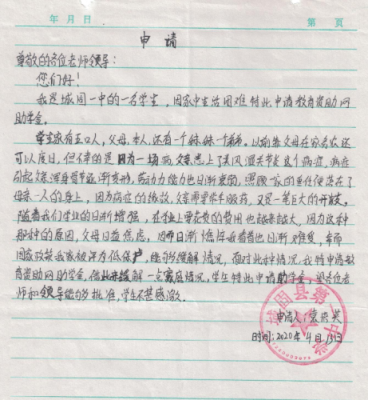 年 月 日 第 页
申请
尊敬的各位老师领导:
您们好!
我是城固一中的一名学生,因家中生活困难特此申请教育资助网
助学金。
学生家有五口人,父母、本人,还有一个妹妹一个弟弟。以前靠父母在家务农还
可以度日,但不幸的是因为一场病,父亲患上了类风湿关节炎这个病
引起浑身骨节逐渐变形,劳动能力也日渐衰弱,照顾一家的重任便落在了
母亲一人的身上,因为病症的缘故,父亲需要常年服药,又是一笔巨大的开支。
随着我们学业的日渐增强,在学业上要花费的费用也越来越大,因为这种
那种的原因,父母日益焦虑,日渐憔悴我看着也日渐难受,幸而
国家政策我家被评为低保户,能够缓解情况,面对此种情况,我特申请教
育资助网助学金,缓解一定家庭情况,学生特此申请助学金,望各位老
师和领导能够批准,学生不甚感激。
申请人:
时间:2020年4月13日
城固县第一中学